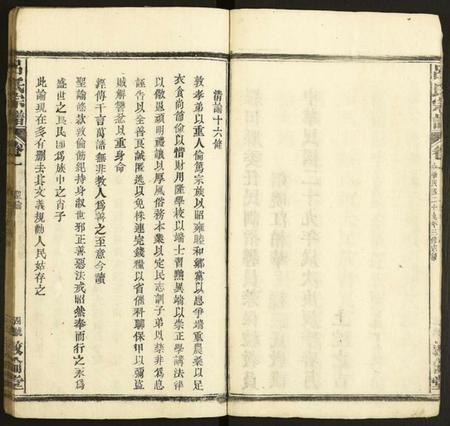 清諭十六條
敦孝弟以重人倫篤宗族以昭雍睦和鄉黨以息爭端重農桑以足
衣食尚節儉以惜財用隆學校以端士習黜異端以崇正學講法律
以儆愚頑明禮讓以厚風俗務本業以定民志訓子弟以禁非為息
誣告以全善良誡匿逃以免株連完錢糧以省催科聯保甲以弭盜
賊解讐忿以重身命
經傳千言萬語無非教人為善之至意今讀
聖諭條款敦倫飭紀持身淑世邪正善惡法戒昭然奉而行之永為
盛世之良民即為族中之肖子
此論現在多有刪去其文義規勸人民姑存之
呂氏宗譜
卷一
聖諭
敦倫堂
呂氏宗譜
卷一